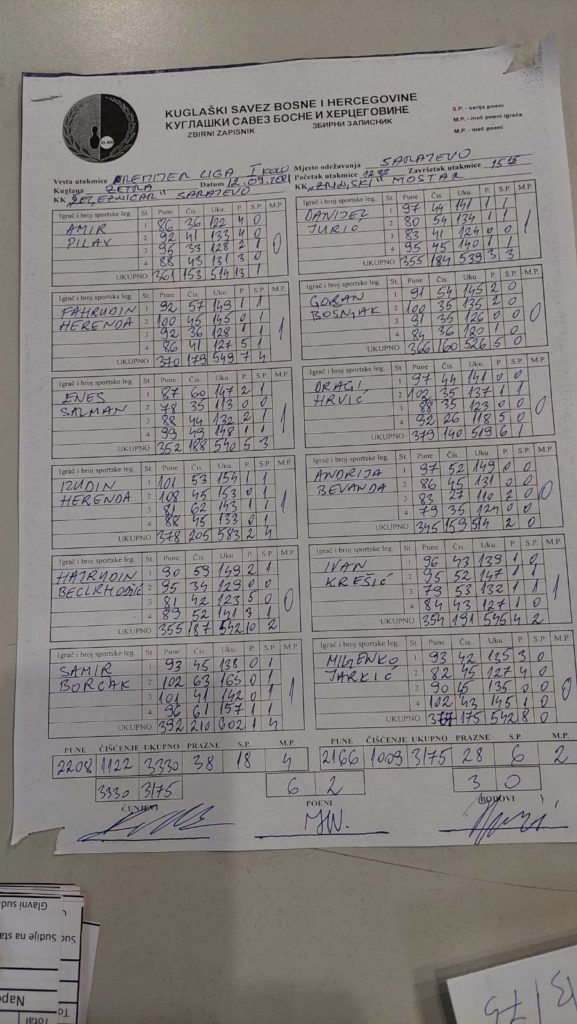 KUGLAŠKI SAVEZ BOSNE I HERCEGOVINE
КУГЛАШКИ САВЕЗ БОСНЕ И ХЕРЦЕГОВИНЕ
ZBIRNI ZAPISNIK ЗБИРНИ ЗАПИСНИК
S.P. - serija poeni
M.P. - meč poeni igrača
M.P. - meč poeni
Vrsta utakmice PREMIJER LIGA I KOLO Mjesto održavanja SARAJEVO
Kuglana ZETRA Datum Početak utakmice Završetak utakmice
KK „ŽELJEZNIČAR" SARAJEVO KK „ZRINJSKI" MOSTAR
Igrač i broj sportske leg. St Pune Čis. Uku. P. S.P. M.P.
AMIR 1 86 36 122 4 0
PILAV 2 92 41 133 4 0
3 95 33 128 2 1 0
4 88 43 131 3 0
UKUPNO 361 153 514 13 1
Igrač i broj sportske leg. St Pune Čis. Uku. P. S.P. M.P.
DANIJEL 1 97 44 141 1 1
JURIĆ 2 80 54 134 1 1
3 83 41 124 0 0 1
4 95 45 140 1 1
UKUPNO 355 184 539 3 3
Igrač i broj sportske leg. St Pune Čis. Uku. P. S.P. M.P.
FAHRUDIN 1 92 57 149 1 1
HERENDA 2 100 45 145 0 1
3 92 36 128 1 1 1
4 86 41 127 5 1
UKUPNO 370 179 549 7 4
Igrač i broj sportske leg. St Pune Čis. Uku. P. S.P. M.P.
GORAN 1 91 54 145 2 0
BOSNJAK 2 100 35 135 2 0
3 91 35 126 0 0 0
4 84 36 120 1 0
UKUPNO 366 160 526 5 0
Igrač i broj sportske leg. St Pune Čis. Uku. P. S.P. M.P.
ENES 1 87 60 147 2 1
SALMAN 2 78 35 113 0 0
3 88 44 132 2 1 1
4 99 49 148 1 1
UKUPNO 352 188 540 5 3
Igrač i broj sportske leg. St Pune Čis. Uku. P. S.P. M.P.
DRAGI 1 97 44 141 0 0
HRVIĆ 2 102 35 137 1 1
3 88 35 123 0 0 0
4 92 26 118 5 0
UKUPNO 379 140 519 6 1
Igrač i broj sportske leg. St Pune Čis. Uku. P. S.P. M.P.
IZUDIN 1 101 53 154 1 1
HERENDA 2 108 45 153 0 1
3 81 62 143 1 1 1
4 88 45 133 0 1
UKUPNO 378 205 583 2 4
Igrač i broj sportske leg. St Pune Čis. Uku. P. S.P. M.P.
ANDRIJA 1 97 52 149 0 0
BEVANDA 2 86 45 131 0 0
3 83 27 110 2 0 0
4 79 35 124 0 0
UKUPNO 345 159 514 2 0
Igrač i broj sportske leg. St Pune Čis. Uku. P. S.P. M.P.
HAJRUDIN 1 90 59 149 2 1
2 95 34 129 0 0
3 81 42 123 5 0 0
4 89 52 141 3 1
UKUPNO 355 187 542 10 2
Igrač i broj sportske leg. St Pune Čis. Uku. P. S.P. M.P.
IVAN 1 96 43 139 1 0
KREŠIĆ 2 95 52 147 1 1
3 79 53 132 1 1 1
4 84 43 127 1 0
UKUPNO 354 191 545 4 2
Igrač i broj sportske leg. St Pune Čis. Uku. P. S.P. M.P.
SAMIR 1 93 45 138 0 1
BORČAK 2 102 63 165 0 1
3 101 41 142 0 1 1
4 96 61 157 1 1
UKUPNO 392 210 602 1 4
Igrač i broj sportske leg. St Pune Čis. Uku. P. S.P. M.P.
MILJENKO 1 93 42 135 3 0
JARKIĆ 2 82 45 127 4 0
3 90 45 135 0 0 0
4 102 43 145 1 0
UKUPNO 367 175 542 8 0
PUNE ČIŠĆENJE UKUPNO PRAZNE S.P. M.P. PUNE ČIŠĆENJE UKUPNO PRAZNE S.P. M.P.
2208 1122 3330 38 18 4 2166 1009 3175 28 6 2
3330 3175 6 2 3 0
ČUNJEVI POENI BODOVI
Glavni sud
Sudije na sta
Nap
Total
3175